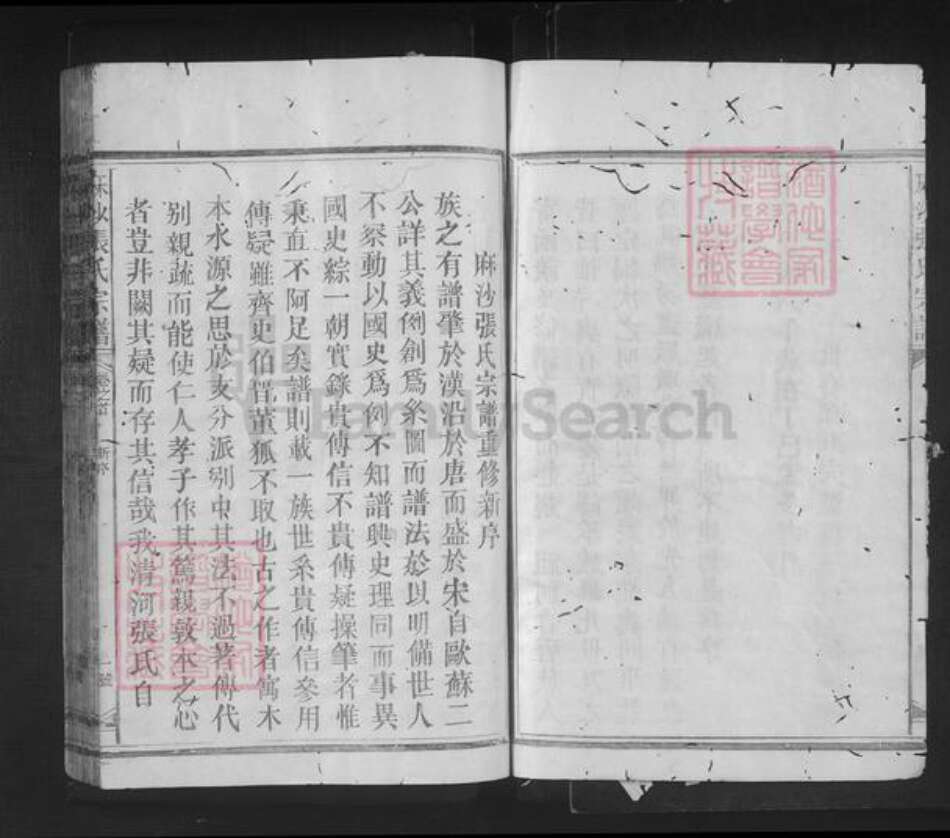 麻沙張氏宗譜重修新序
族之有譜肇於漢沿於唐而盛於宋自歐蘇二
公詳其義例創為系圖而譜法於以明備世人
不察動以國史為例不知譜與史理同而事異
國史綜一朝實錄貴傳信不貴傳疑操筆者惟
秉直不阿足矣譜則載一族世系貴傳信參用
傳疑雖齊史伯晋董狐不取也古之作者寓木
本水源之思於支分派别中其法不過著傳代
别親疏而能使仁人孝子作其篤親敦本之心
者豈非闕其疑而存其信哉我清河張氏自
麻沙張氏宗譜
新序
FamilySearch